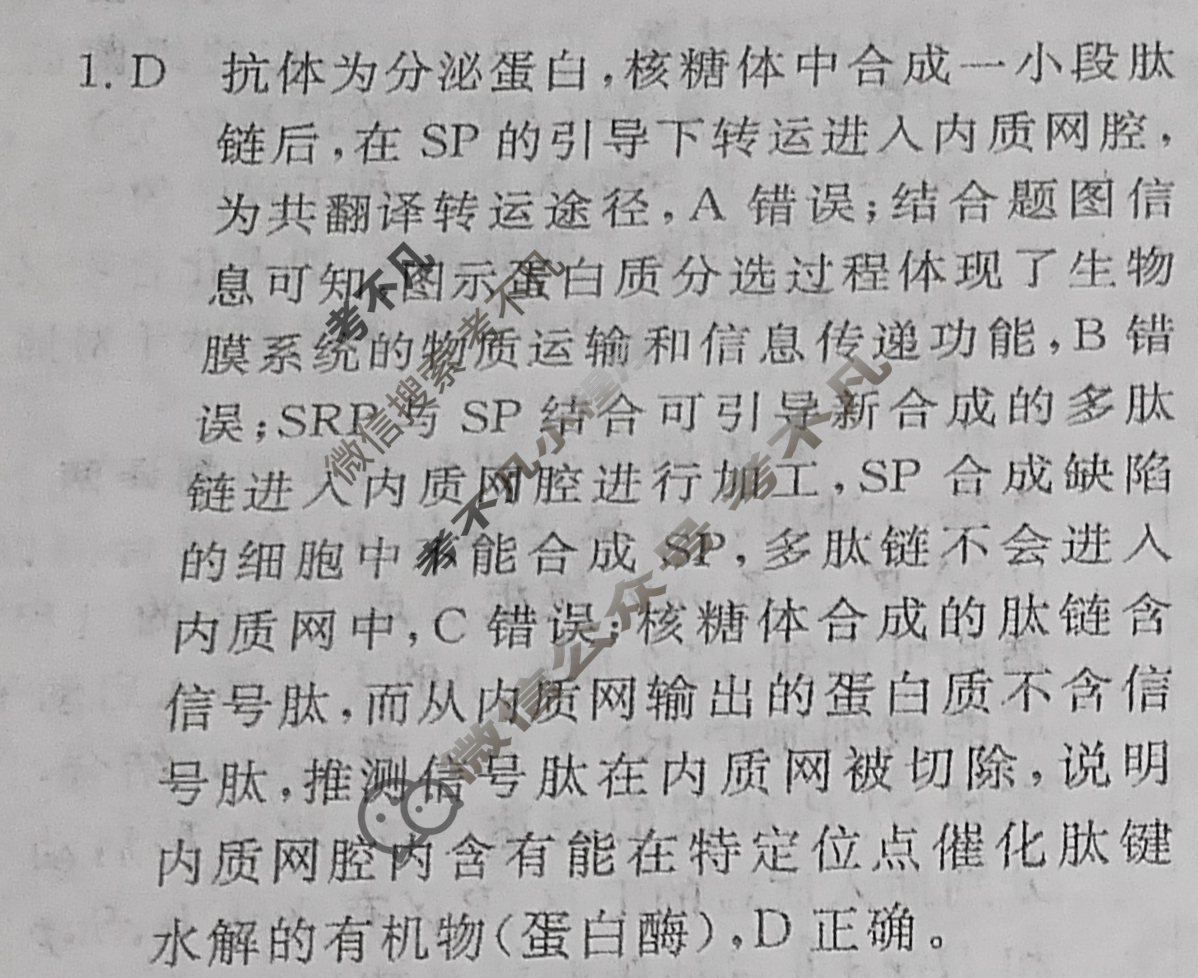 1. D 抗体为分泌蛋白,核糖体中合成一小段肽
链后,在 SP 的引导下转运进入内质网腔,
为共翻译转运途径,A 错误;结合题图信
息可知,图示蛋白质分选过程体现了生物
膜系统的物质运输和信息传递功能,B 错
误;SRP 与 SP 结合可引导新合成的多肽
链进入内质网腔进行加工,SP 合成缺陷
的细胞中不能合成 SP,多肽链不会进入
内质网中,C 错误;核糖体合成的肽链含
信号肽,而从内质网输出的蛋白质不含信
号肽,推测信号肽在内质网被切除,说明
内质网腔内含有能在特定位点催化肽键
水解的有机物(蛋白酶),D 正确。
考不凡
微信搜索考不凡
微信公众号 考不凡